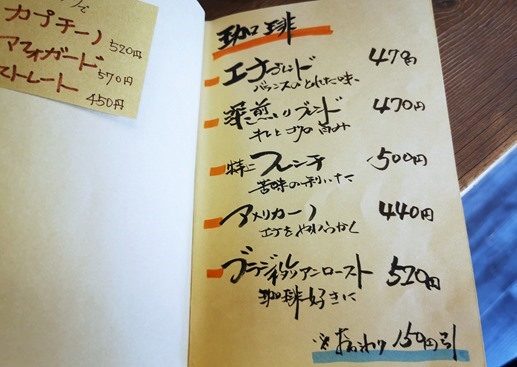 カプチーノ 520円
マフォガード 570円
ストレート 450円
珈琲
エチブレンド 470
バランスのとれた味、
深煎りブレンド 470円
キレとコク 苦み
特にフレンチ 500円
苦味の利いた
アメリカーノ 440円
エチをやわらかく
ブラジリアンロースト 520円
珈琲好きに
※おかわり 150円引